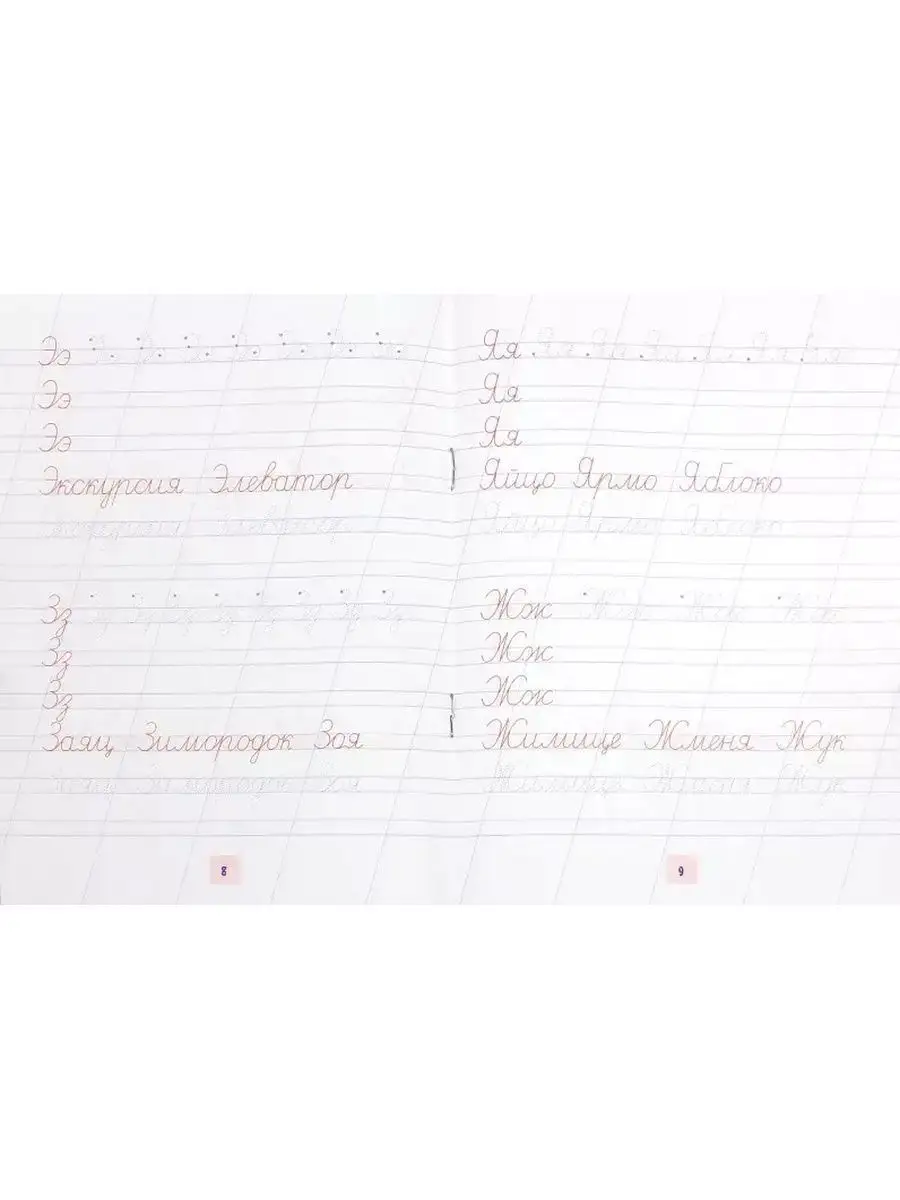 Ээ
Ээ
Ээ
Экскурсия Элеватор
Экскурсия Элеватор
Зз Зз Зз Зз Зз Зз Зз Зз
Зз
Зз
Заяц Зимородок Зоя
Заяц Зимородок Зоя
8
Яя Яя Яя Яя Яя Яя Яя
Яя
Яя
Яйцо Ярмо Яблоко
Яйцо Ярмо Яблоко
Жж Жж Жж Жж
Жж
Жж
Жилище Жменя Жук
Жилище Жменя Жук
9